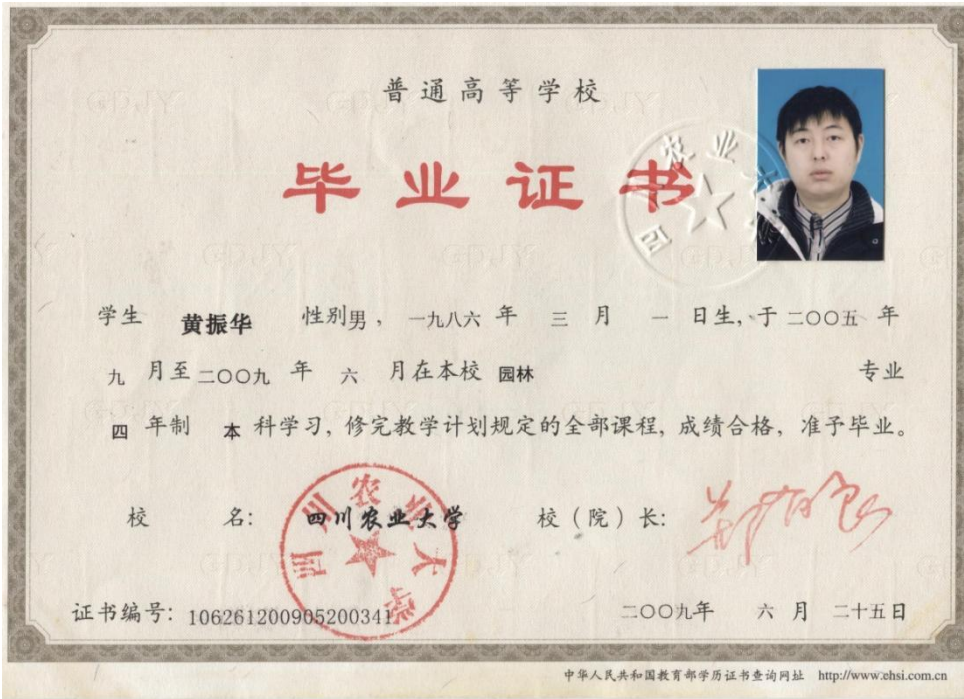 普通高等学校
毕业证书
学生 黄振华 性别男，一九八六年 三 月 一 日生，于二〇〇五年
九 月至二〇〇九 年 六 月在本校 园林 专业
四 年制 本 科学习，修完教学计划规定的全部课程，成绩合格，准予毕业。
校 名： 四川农业大学 校（院）长：
四川农业大学
证书编号：106261200905200341
二〇〇九年 六 月 二十五日
中华人民共和国教育部学历证书查询网址 http://www.chsi.com.cn